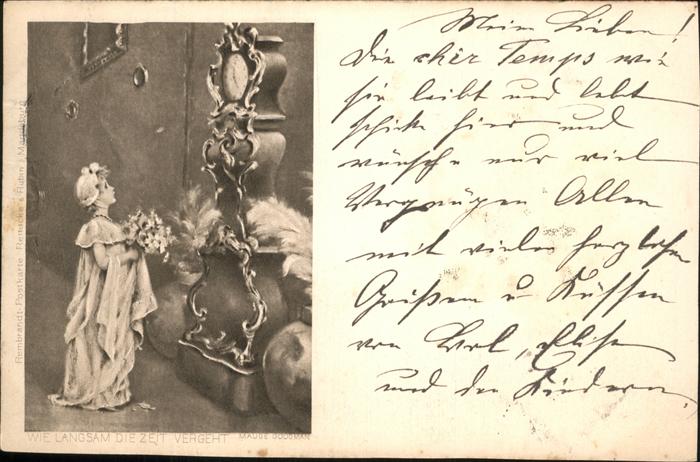 Mein Lieben!
Die cher Temps wie
sie leibt und lebt
schike hier und
wünsche nur viel
Vergnügen Allen
mit vielen herzlichen
Grüßen u Küssen
von Elise
und den Kindern.
WIE LANGSAM DIE ZEIT VERGEHT MAUDE GOODMAN
Rembrandt-Postkarte Reinicke & Rubin, Magdeburg